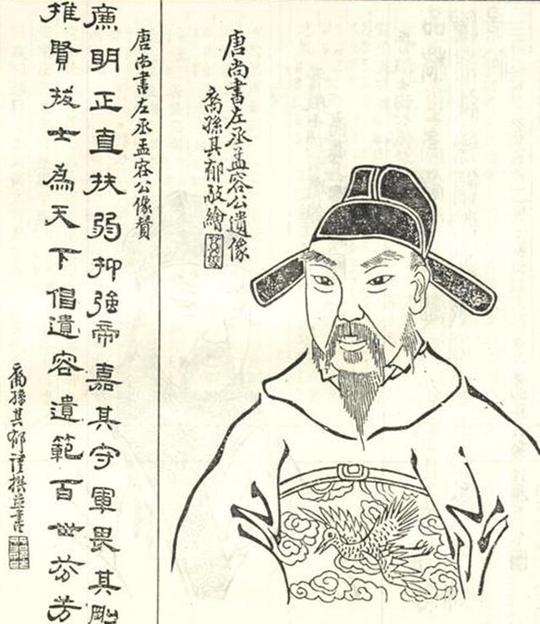 唐尚書左丞孟容公遺像
裔孫其郁敬繪
唐尚書左丞孟容公像贊
廉明正直扶弱抑強帝嘉其守軍畏其剛
推賢拔士為天下倡遺容遺範百世芬芳
裔孫其郁謹撰並書